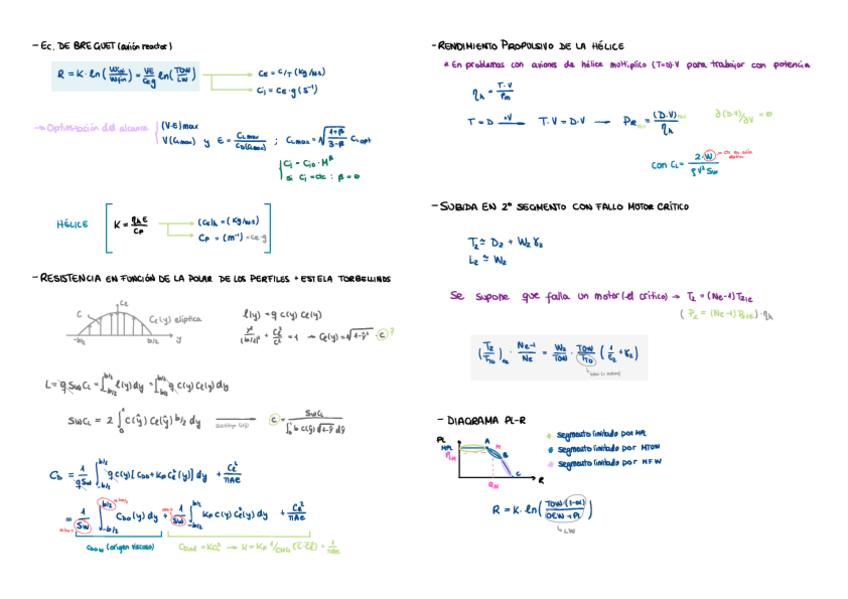 - EC. DE BREGUET (avión reactor)
R = K · ln(Wini/Wfin) = VE/CEg ln(TOW/LW)
CE = C/T (Kg/N·s)
Ci = CE · g (s⁻¹)
→ Optimización del alcance
(V·E)max
V(CLmax) y E = CLmax/CD(CLmax) ; CLmax = √(1+β/3-β) CLopt
Ci = Ci0 · M^β
si Ci = cte : β = 0
HÉLICE
K = ηh E/CP
(CE)h = (Kg/W·s)
CP = (m⁻¹) = CE·g
- RESISTENCIA EN FUNCIÓN DE LA POLAR DE LOS PERFILES + ESTELA TORBELLINOS
C
Cl
Cl(y) elíptica
-b/2
b/2
y
l(y) = q c(y) Cl(y)
→ Cl(y) = √1-ŷ² · C ?
L = q Sw CL = ∫ l(y) dy = ∫ q c(y) Cl(y) dy
Sw CL = 2 ∫ c(ŷ) Cl(ŷ) b/2 dŷ
CD = 1/qSw ∫ q c(y) [CD0 + KP Cl²(y)] dy + CL²/πAe
= 1/Sw ∫ CD0(y) dy + 1/Sw ∫ KP c(y) Cl²(y) dy + CL²/πAe
CD0w (origen viscoso)
- RENDIMIENTO PROPULSIVO DE LA HÉLICE
* En problemas con aviones de hélice multiplico (T=D)·V para trabajar con potencia
ηh = T·V/Pm
T = D ·V T·V = D·V → PE = (D·V)/ηh
∂(D·V)/∂V = 0
con CL = 2·W/ρV²Sw
- SUBIDA EN 2º SEGMENTO CON FALLO MOTOR CRÍTICO
T2 ≃ D2 + W2 γ2
L2 ≃ W2
Se supone que falla un motor (el crítico) → T2 = (Ne-1) T2,E
(P2 = (Ne-1) P2,E) · ηh
(T2/TTO) · Ne-1/Ne = W2/TOW · TOW/TTO (1/E2 + γ2)
- DIAGRAMA PL-R
PL
MPL
A
B
C
R
segmento limitado por MPL
segmento limitado por MTOW
segmento limitado por MFW
R = K · ln(TOW(1-α)/OEW + PL)
LW